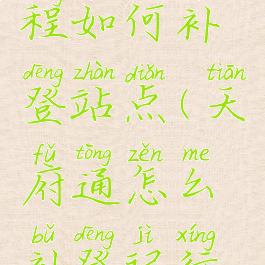 程如何补
dēng zhàn diǎn tiān
登站点(天
fǔ tōng zěn me
府通怎么
bǔ dēng jì xíng
补登记行